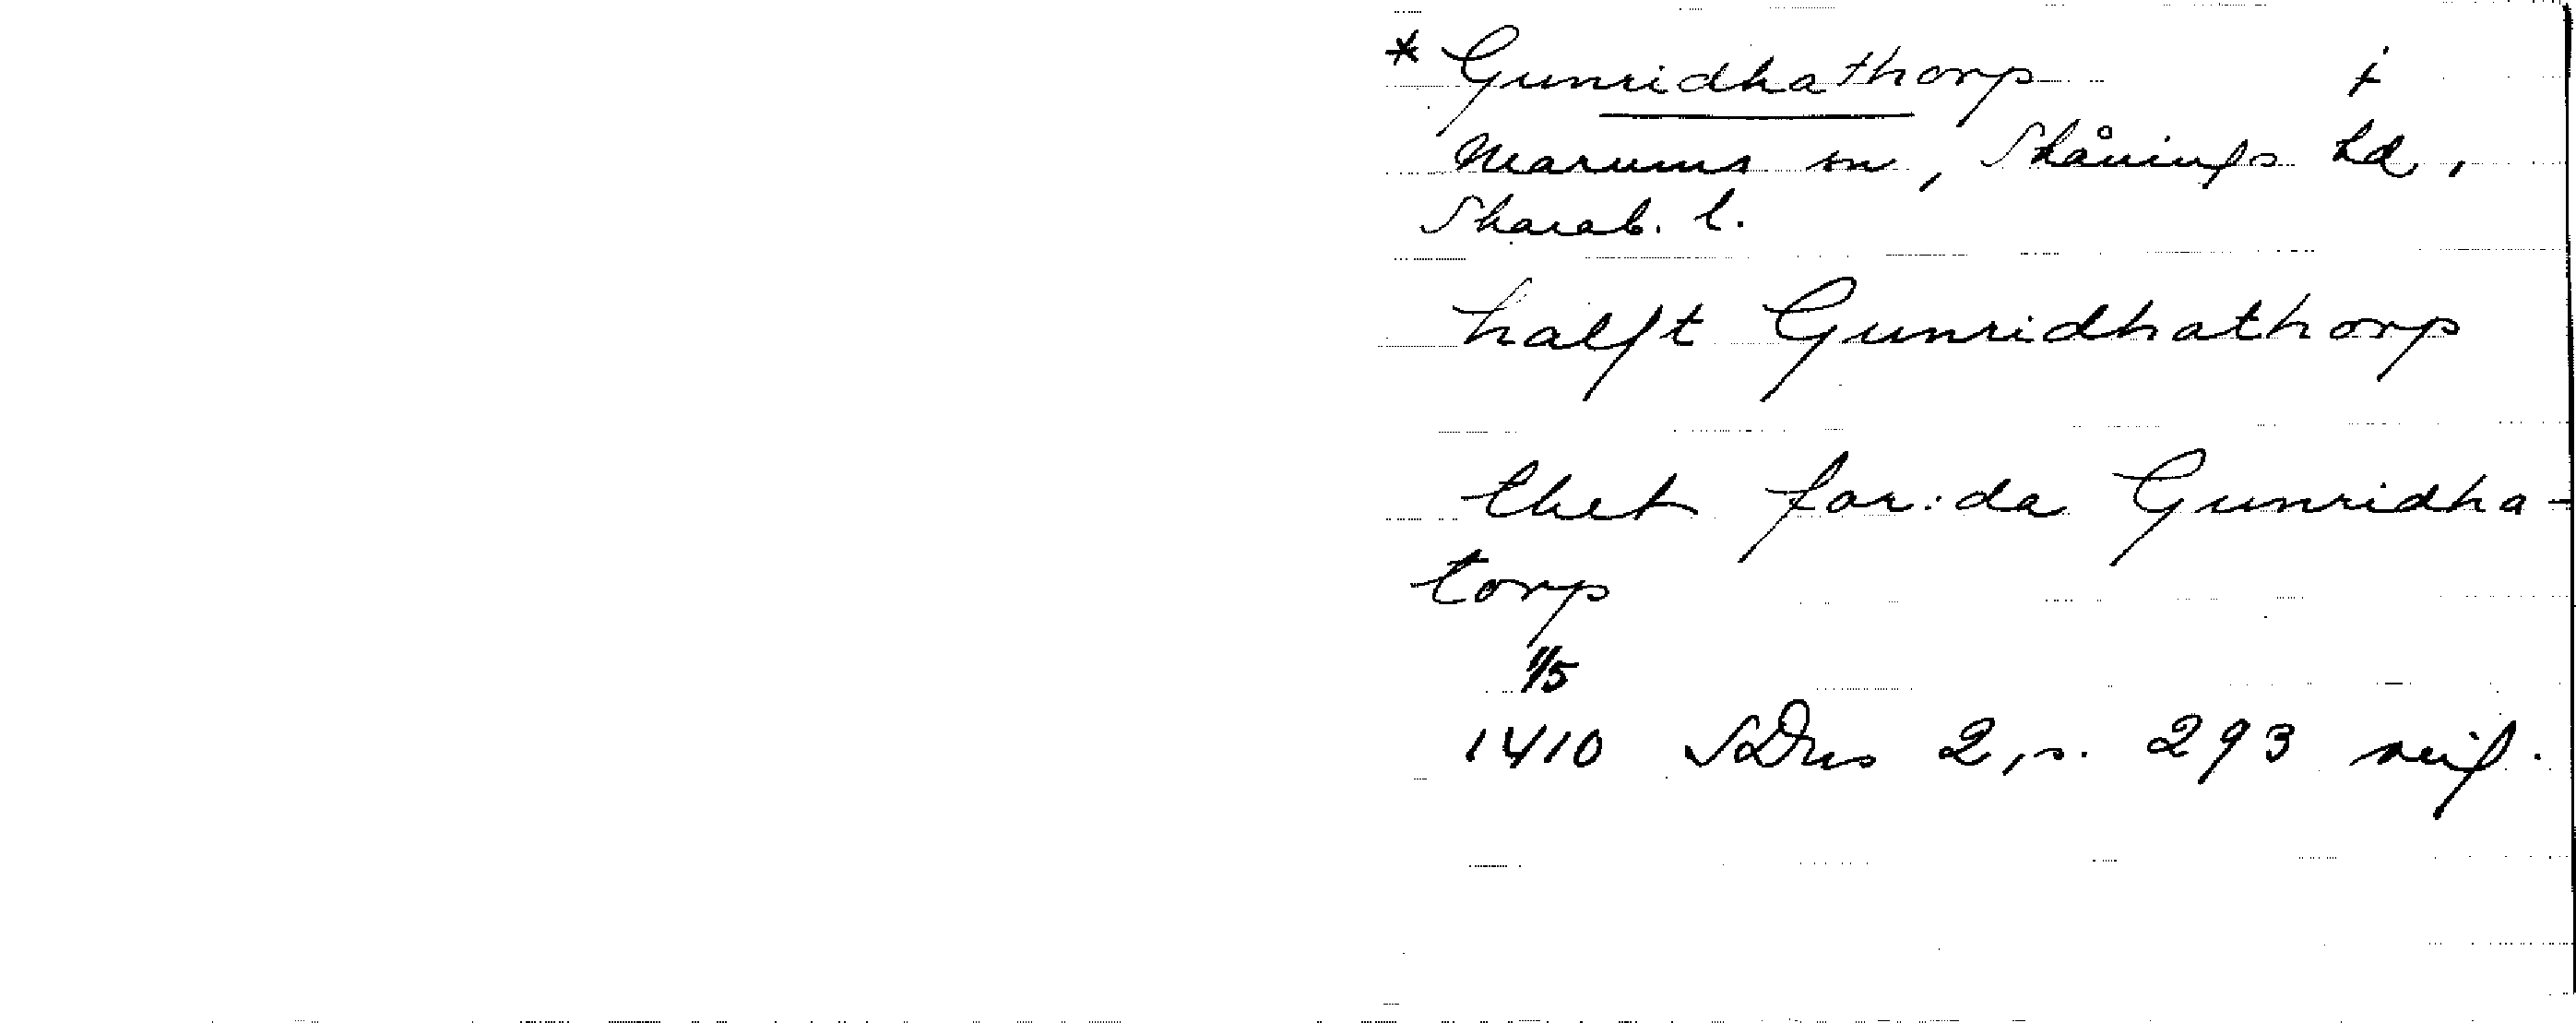 * Gunridhathorp i
Marums sn, Skånings hd,
Skarab. l.
halft Gunridhathorp
thet for:da Gunridha-
torp
1/5
1410 SDns 2, s. 293